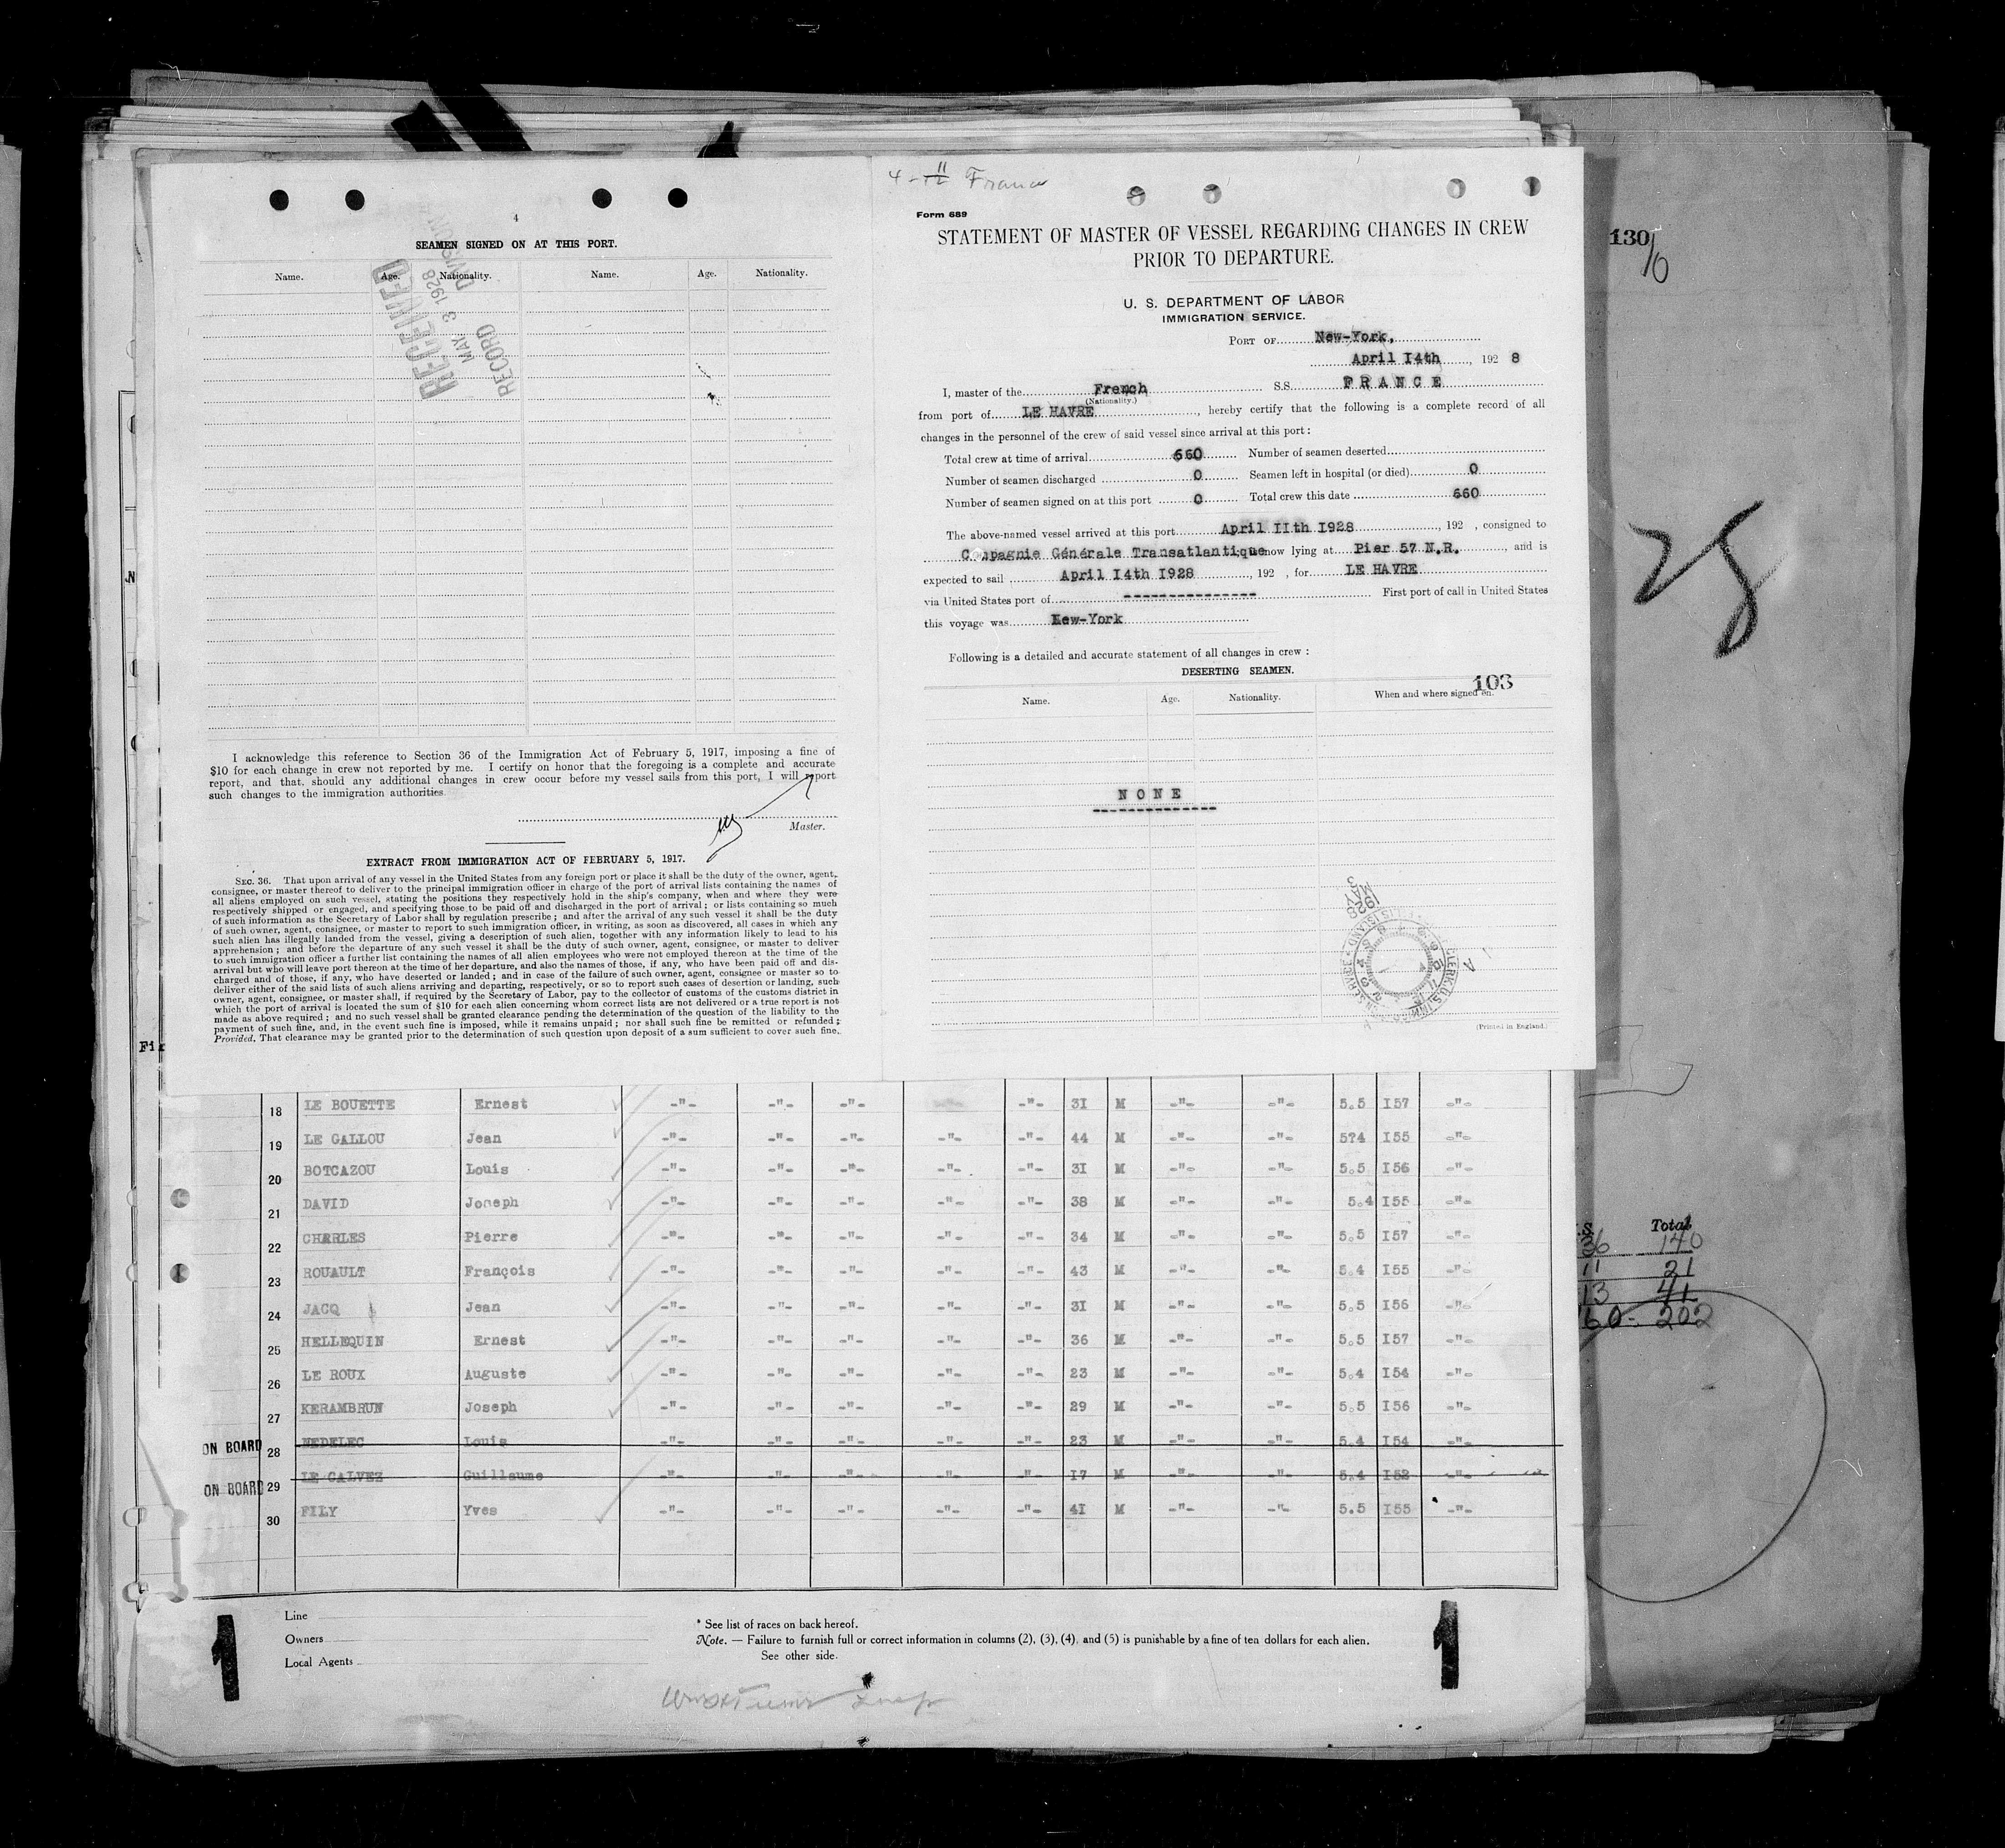 4
SEAMEN SIGNED ON AT THIS PORT.
Name. Age. Nationality. Name. Age. Nationality.
RECEIVED
MAY 3 1928
RECORD DIVISION
I acknowledge this reference to Section 36 of the Immigration Act of February 5, 1917, imposing a fine of
$10 for each change in crew not reported by me. I certify on honor that the foregoing is a complete and accurate
report, and that, should any additional changes in crew occur before my vessel sails from this port, I will report
such changes to the immigration authorities.
Master.
EXTRACT FROM IMMIGRATION ACT OF FEBRUARY 5, 1917.
SEC. 36. That upon arrival of any vessel in the United States from any foreign port or place it shall be the duty of the owner, agent,
consignee, or master thereof to deliver to the principal immigration officer in charge of the port of arrival lists containing the names of
all aliens employed on such vessel, stating the positions they respectively hold in the ship's company, when and where they were
respectively shipped or engaged, and specifying those to be paid off and discharged in the port of arrival; or lists containing so much
of such information as the Secretary of Labor shall by regulation prescribe; and after the arrival of any such vessel it shall be the duty
of such owner, agent, consignee, or master to report to such immigration officer, in writing, as soon as discovered, all cases in which any
such alien has illegally landed from the vessel, giving a description of such alien, together with any information likely to lead to his
apprehension; and before the departure of any such vessel it shall be the duty of such owner, agent, consignee, or master to deliver
to such immigration officer a further list containing the names of all alien employees who were not employed thereon at the time of the
arrival but who will leave port thereon at the time of her departure, and also the names of those, if any, who have been paid off and dis-
charged and of those, if any, who have deserted or landed; and in case of the failure of such owner, agent, consignee or master so to
deliver either of the said lists of such aliens arriving and departing, respectively, or so to report such cases of desertion or landing, such
owner, agent, consignee, or master shall, if required by the Secretary of Labor, pay to the collector of customs of the customs district in
which the port of arrival is located the sum of $10 for each alien concerning whom correct lists are not delivered or a true report is not
made as above required; and no such vessel shall be granted clearance pending the determination of the question of the liability to the
payment of such fine, and, in the event such fine is imposed, while it remains unpaid; nor shall such fine be remitted or refunded;
Provided, That clearance may be granted prior to the determination of such question upon deposit of a sum sufficient to cover such fine.
4-11/12 France
Form 689
STATEMENT OF MASTER OF VESSEL REGARDING CHANGES IN CREW
PRIOR TO DEPARTURE.
U. S. DEPARTMENT OF LABOR
IMMIGRATION SERVICE.
PORT OF New-York,
April I4th, 192 8
I, master of the French S.S. FRANCE
(Nationality.)
from port of LE HAVRE, hereby certify that the following is a complete record of all
changes in the personnel of the crew of said vessel since arrival at this port:
Total crew at time of arrival 660 Number of seamen deserted
Number of seamen discharged 0 Seamen left in hospital (or died) 0
Number of seamen signed on at this port 0 Total crew this date 660
The above-named vessel arrived at this port April IIth I928, 192 , consigned to
Compagnie Générale Transatlantique now lying at Pier 57 N.R., and is
expected to sail April I4th I928, 192 , for LE HAVRE
via United States port of -------------- First port of call in United States
this voyage was New-York
Following is a detailed and accurate statement of all changes in crew:
DESERTING SEAMEN.
103
Name. Age. Nationality. When and where signed on.
NONE
--------------
1928
MAY
3
(Printed in England.)
130
28
Fir
18 LE BOUETTE Ernest -"- -"- -"- -"- 3I M -"- -"- 5.5 I57 -"-
19 LE GALLOU Jean -"- -"- -"- -"- -"- 44 M -"- -"- 5?4 I55 -"-
20 BOTCAZOU Louis -"- -"- -"- -"- -"- 3I M -"- -"- 5.5 I56 -"-
21 DAVID Joseph -"- -"- -"- -"- -"- 38 M -"- -"- 5.4 I55 -"-
22 CHARLES Pierre -"- -"- -"- -"- -"- 34 M -"- -"- 5.5 I57 -"-
23 ROUAULT François -"- -"- -"- -"- -"- 43 M -"- -"- 5.4 I55 -"-
24 JACQ Jean -"- -"- -"- -"- -"- 3I M -"- -"- 5.5 I56 -"-
25 HELLEQUIN Ernest -"- -"- -"- -"- -"- 36 M -"- -"- 5.5 I57 -"-
26 LE ROUX Auguste -"- -"- -"- -"- -"- 23 M -"- -"- 5.4 I54 -"-
27 KERAMBRUN Joseph -"- -"- -"- -"- -"- 29 M -"- -"- 5.5 I56 -"-
ON BOARD 28 NEDELEC Louis -"- -"- -"- -"- -"- 23 M -"- -"- 5.4 I54 -"-
ON BOARD 29 LE CALVEZ Guillaume -"- -"- -"- -"- -"- I7 M -"- -"- 5.4 I52 -"-
30 FILY Yves -"- -"- -"- -"- -"- 4I M -"- -"- 5.5 I55 -"-
Total
36 140
11 21
13 41
60 - 202
1
1
Line
Owners
Local Agents
* See list of races on back hereof.
Note. — Failure to furnish full or correct information in columns (2), (3), (4), and (5) is punishable by a fine of ten dollars for each alien.
See other side.